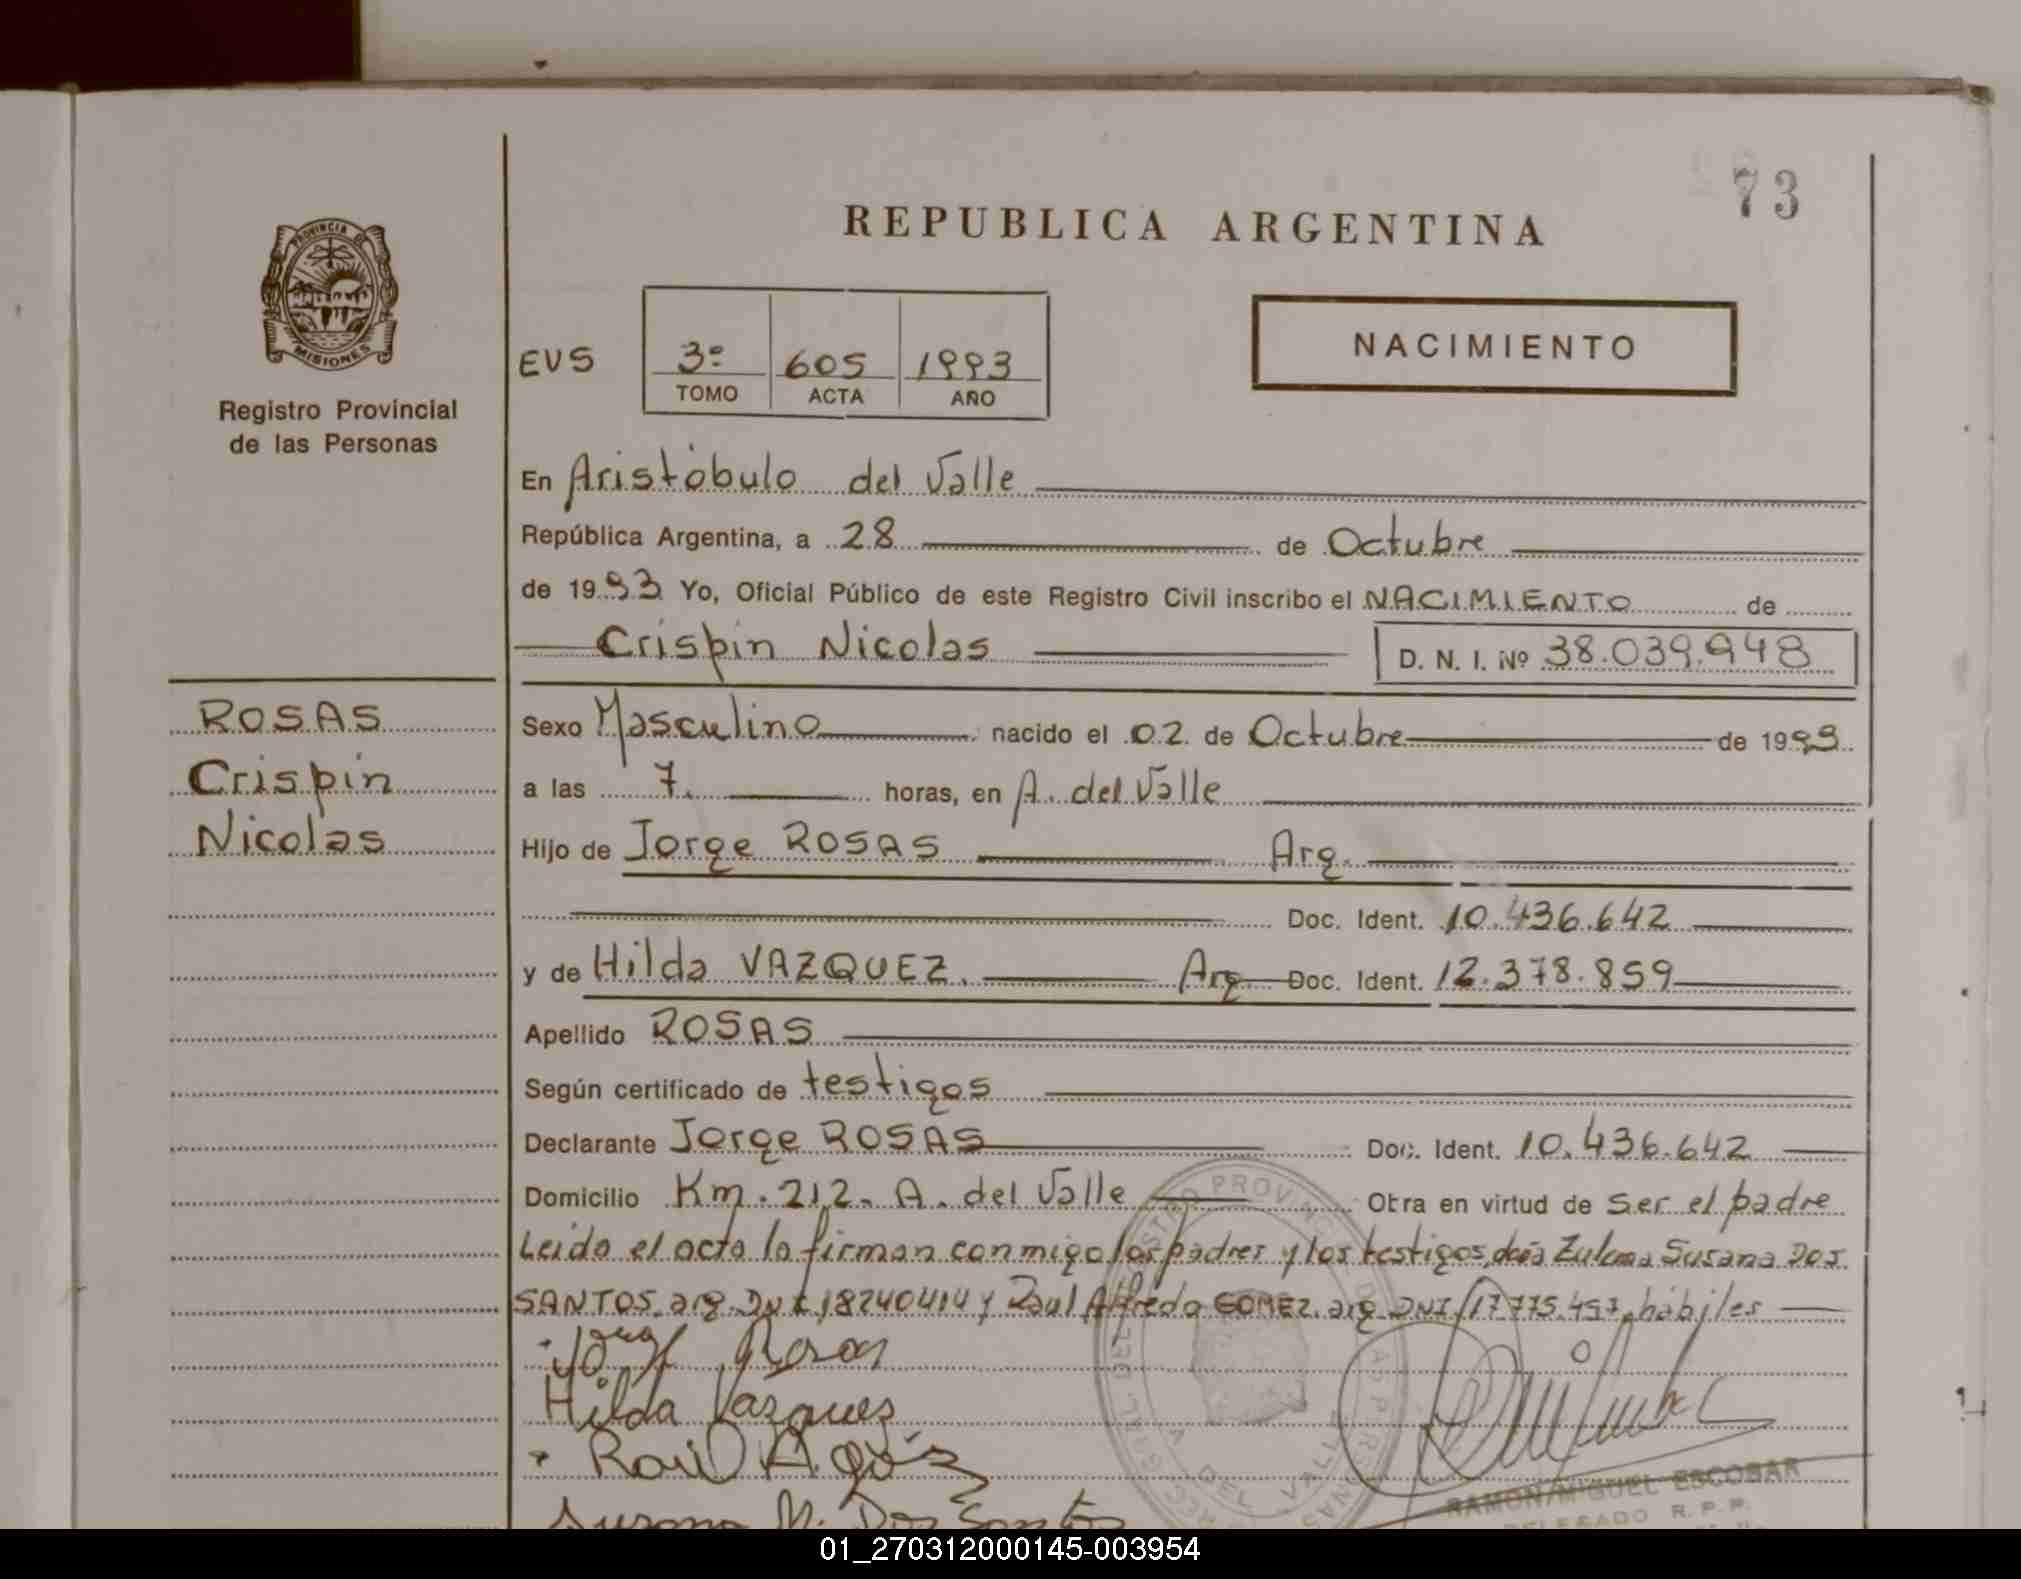 73
REPUBLICA ARGENTINA
PROVINCIA DE
MISIONES
Registro Provincial
de las Personas
EVS
3º 605 1993
TOMO ACTA AÑO
NACIMIENTO
En Aristóbulo del Valle
República Argentina, a 28 de Octubre
de 1993 Yo, Oficial Público de este Registro Civil inscribo el NACIMIENTO de
Crispin Nicolas D. N. I. Nº 38.039.948
ROSAS
Crispin
Nicolas
Sexo Masculino nacido el 02 de Octubre de 1993
a las 7 horas, en A. del Valle
Hijo de Jorge ROSAS Arg.
Doc. Ident. 10.436.642
y de Hilda VAZQUEZ. Arg Doc. Ident. 12.378.859
Apellido ROSAS
Según certificado de testigos
Declarante Jorge ROSAS Doc. Ident. 10.436.642
Domicilio Km. 212. A. del Valle Otra en virtud de Ser el padre
Leida el acta la firman conmigo los padres y los testigos, doña Zulema Susana DOS
SANTOS. arg. DNI 18240414 y Raul Alfredo GOMEZ. arg. DNI 17.775.457, hábiles
Jorge Rosas
Hilda Vazquez
Raul A.
Susana Dos Santos
RAMON MIGUEL ESCOBAR
DELEGADO R. P. P.
01_270312000145-003954